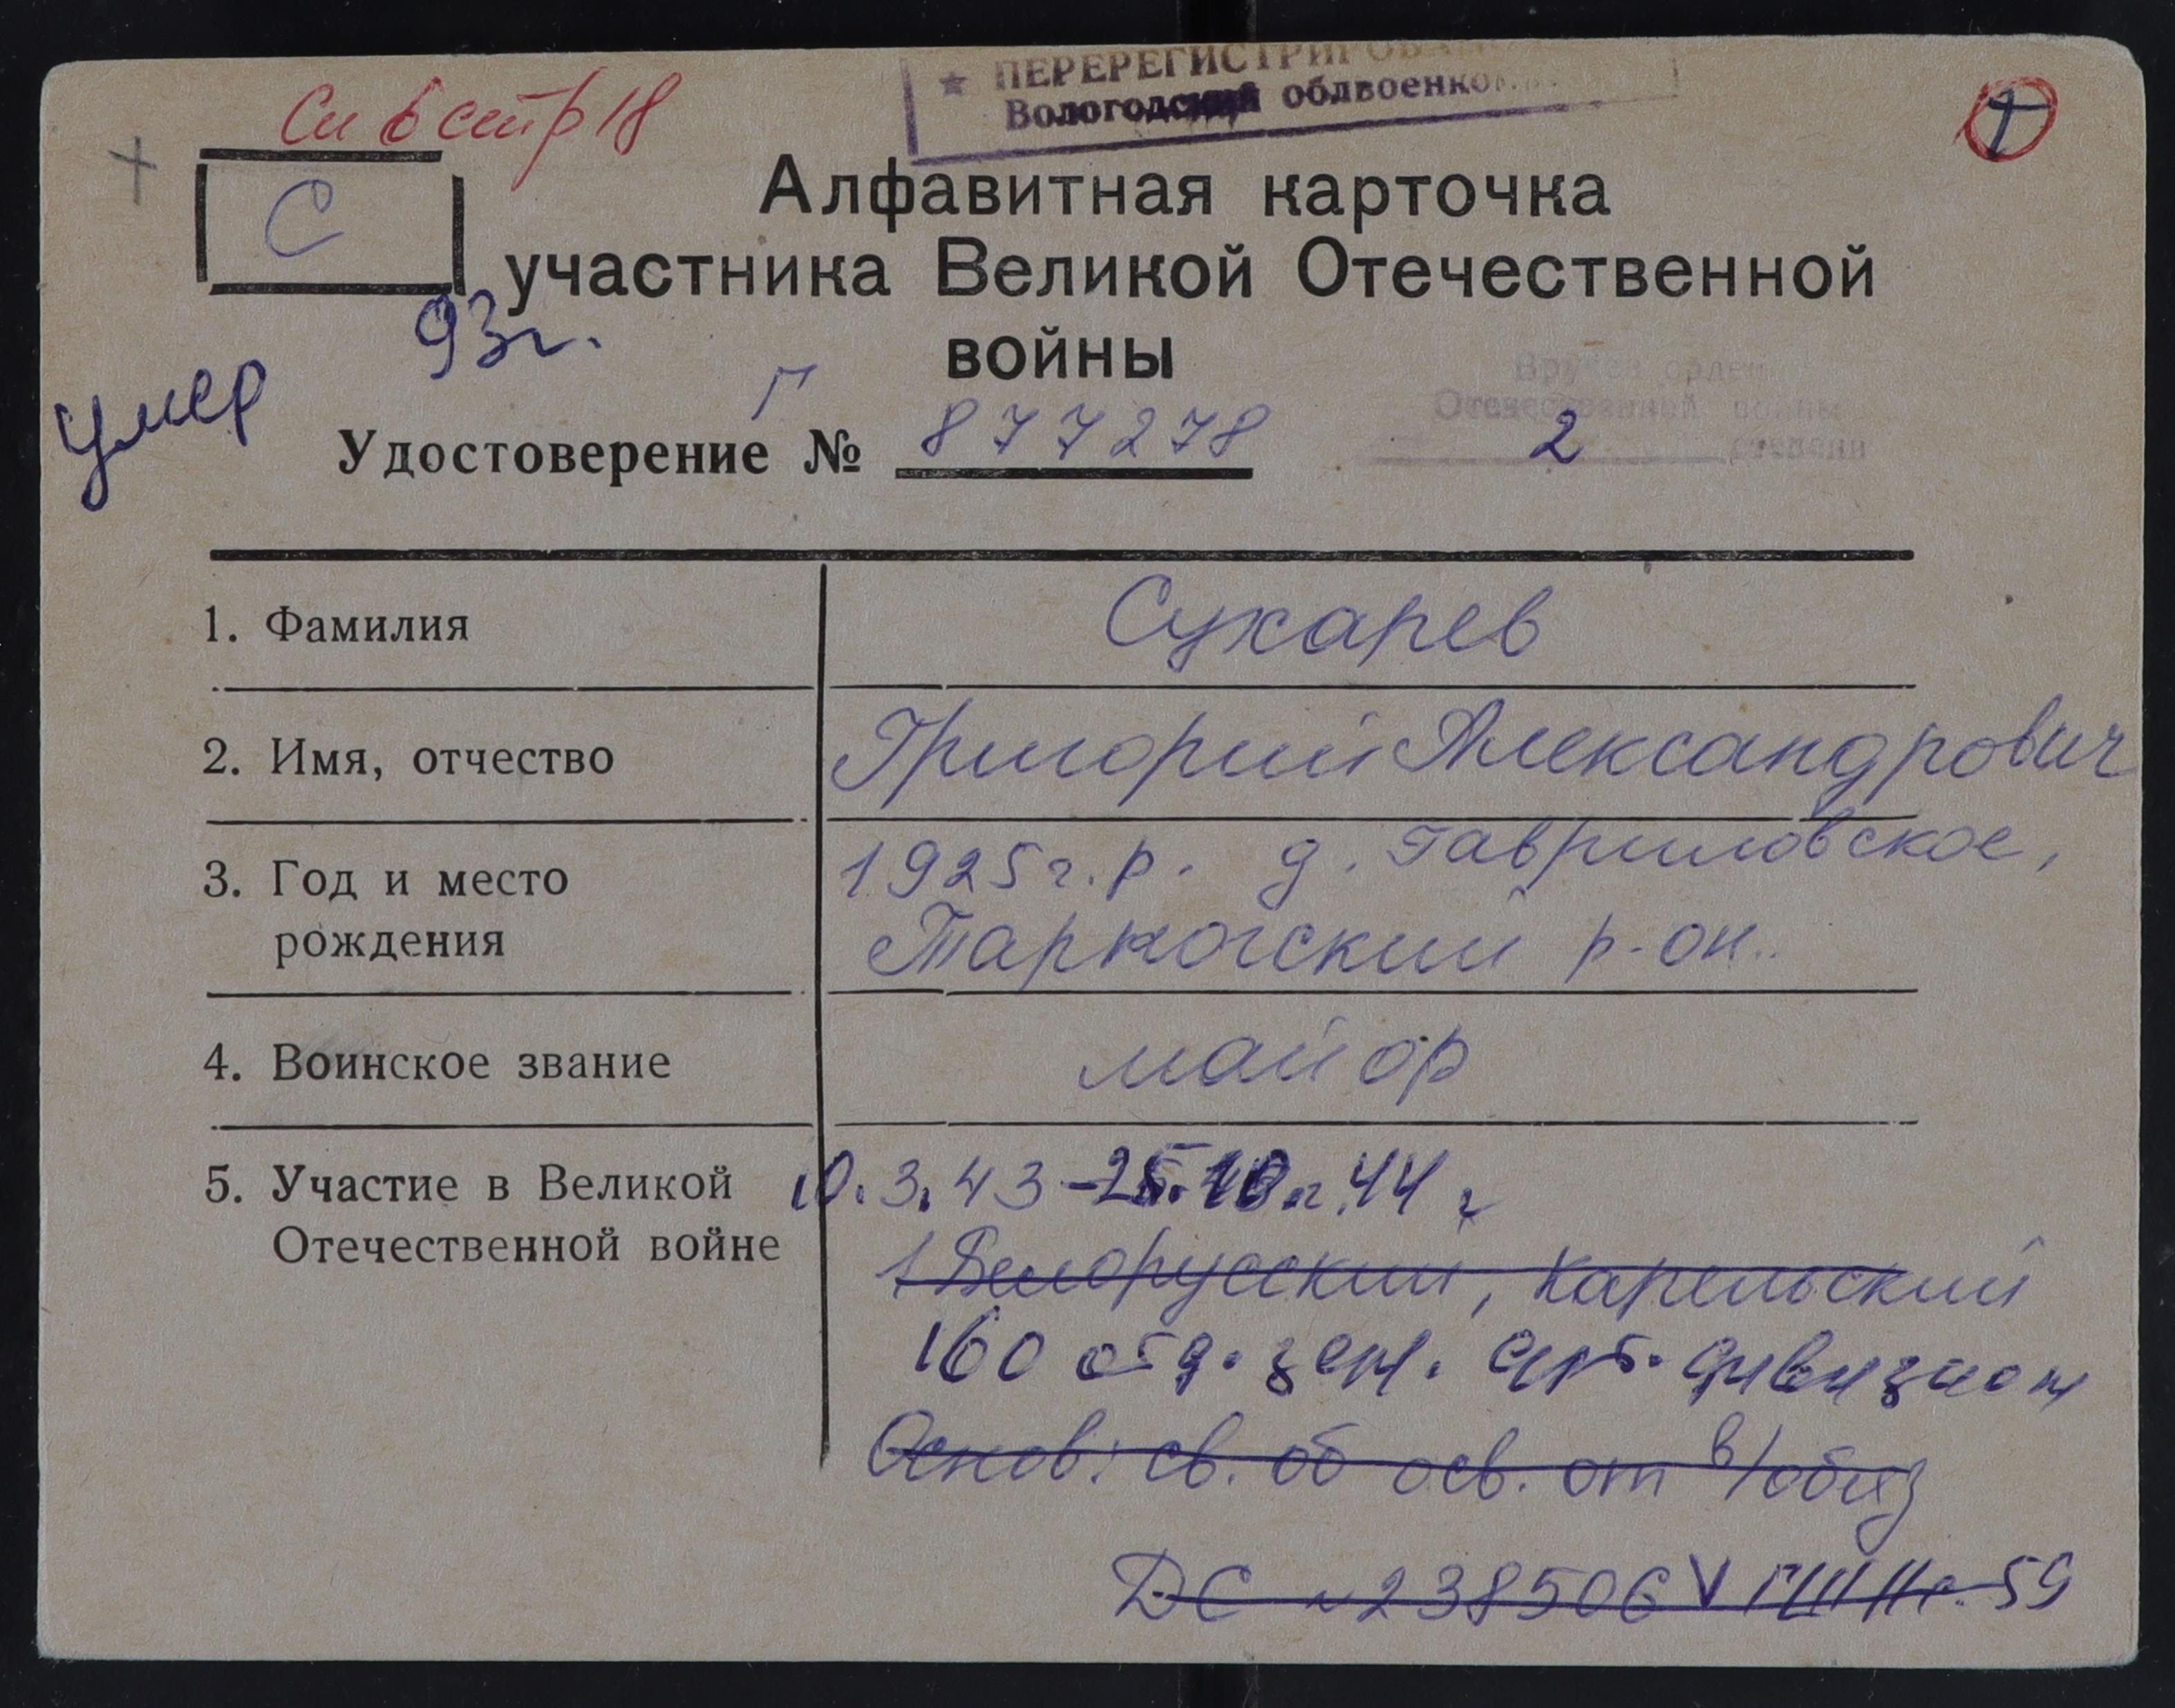 См в стр 18
★ ПЕРЕРЕГИСТРИРОВАН
Вологодский облвоенком
1
С
Алфавитная карточка
участника Великой Отечественной
войны
умер 93г.
Г
Удостоверение № 877278
Вручен орден
Отечественной войны
2 степени
1. Фамилия
Сухарев
2. Имя, отчество
Григорий Александрович
3. Год и место
рождения
1925г.р. д. Гавриловское,
Тарногский р-он..
4. Воинское звание
майор
5. Участие в Великой
Отечественной войне
10.3.43 - 25.10.44 г
1 Белорусский, Карельский
160 отд. зен. арт. дивизион
Основ: св. об осв. от в/обяз
ДС №238506 59